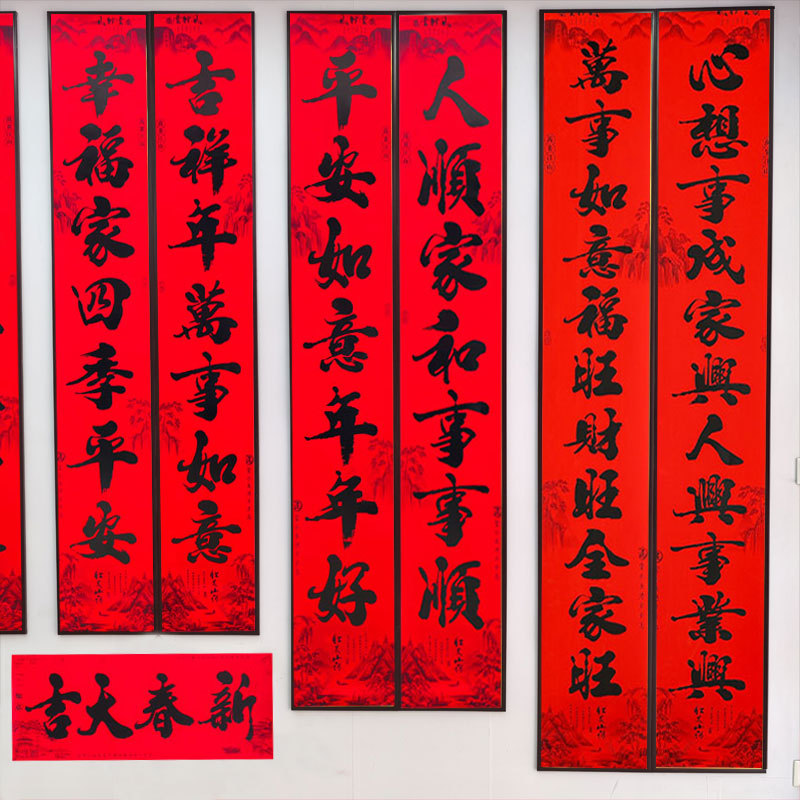 心想事成家興人興事業興
萬事如意福旺財旺全家旺
人順家和事事順
平安如意年年好
吉祥年萬事如意
幸福家四季平安
新春大吉